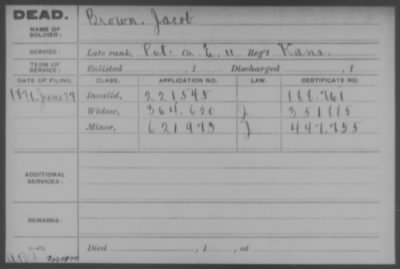 DEAD. Brown, Jacob
NAME OF SOLDIER:
SERVICE: Late rank, Pvt. Co. E, 11 Reg't Kans.
TERM OF SERVICE: Enlisted , 1 Discharged , 1
DATE OF FILING. CLASS. APPLICATION NO. LAW. CERTIFICATE NO.
1876, June 29 Invalid, 221545 188.761
Widow, 364.620 J 351115
Minor, 621973 J 447.755
ADDITIONAL SERVICES:
REMARKS:
Died , 1 , at